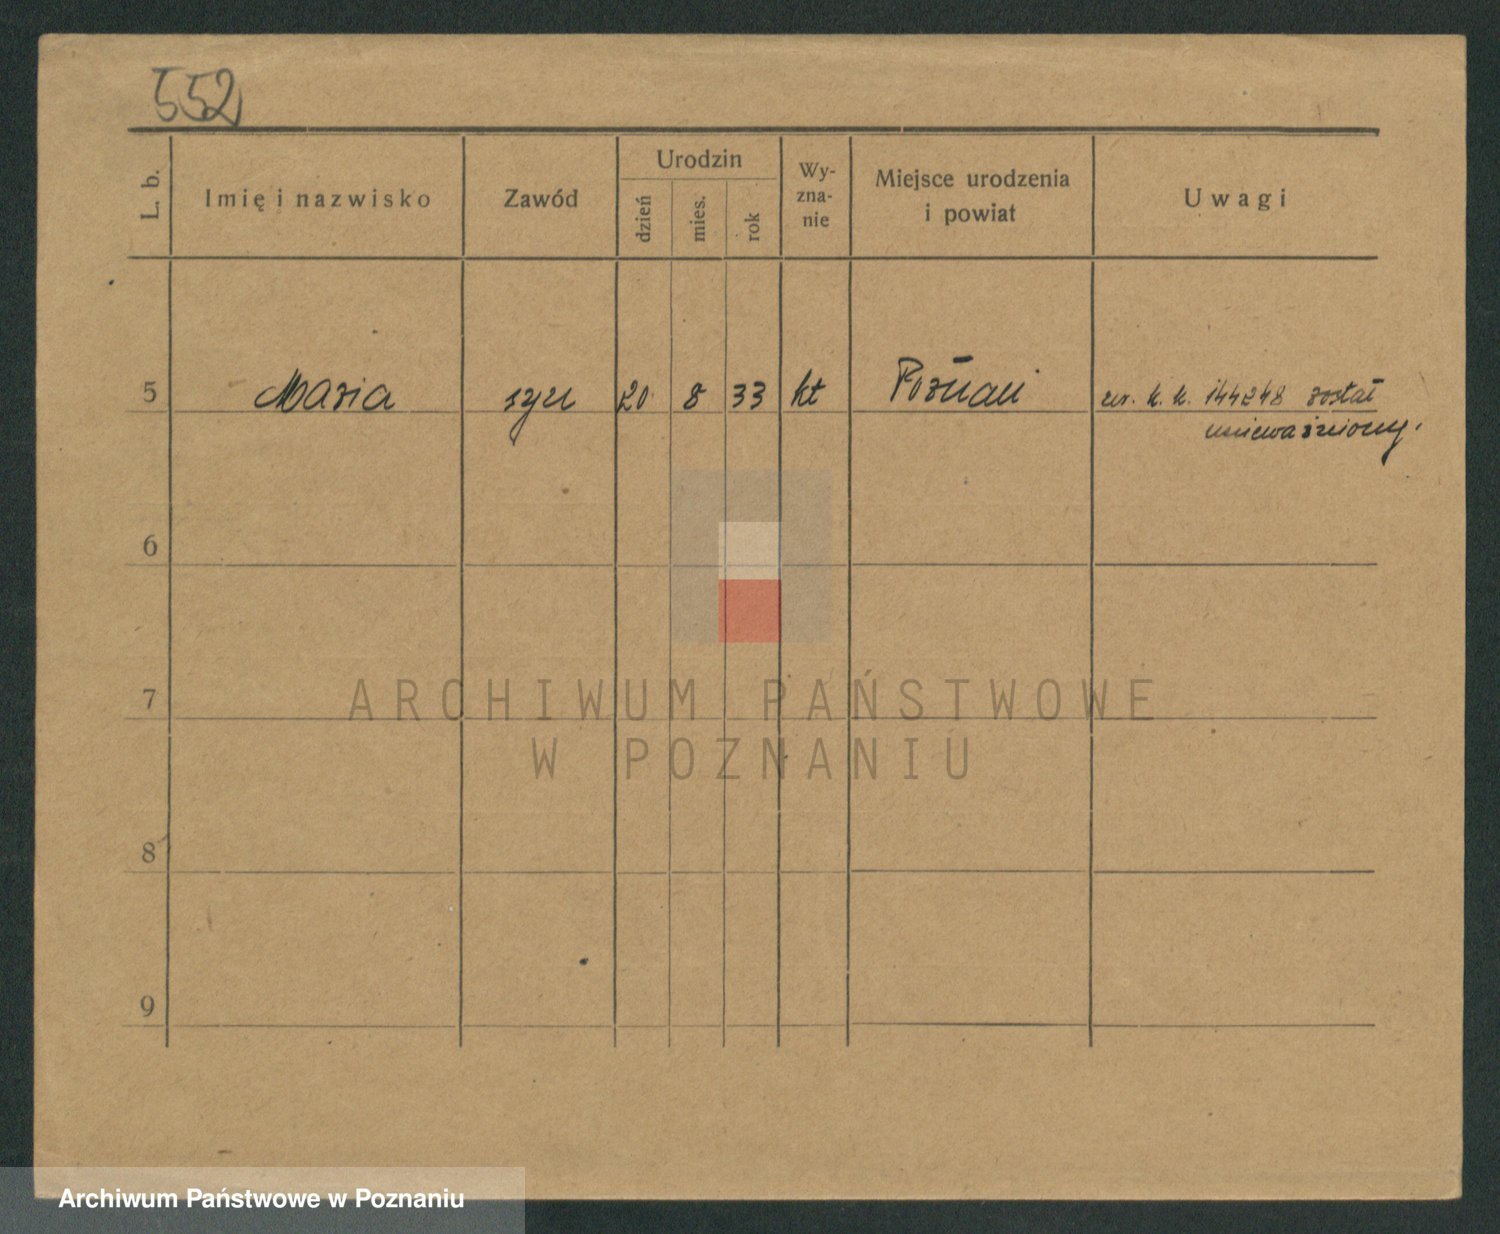 552
L. b.
Imię i nazwisko
Zawód
Urodzin
dzień
mies.
rok
Wy-
zna-
nie
Miejsce urodzenia
i powiat
Uwagi
5 Maria 20 8 33 kt Poznań k. k. 144248 został
unieważniony.
6
7
8
9
ARCHIWUM PAŃSTWOWE
W POZNANIU
Archiwum Państwowe w Poznaniu